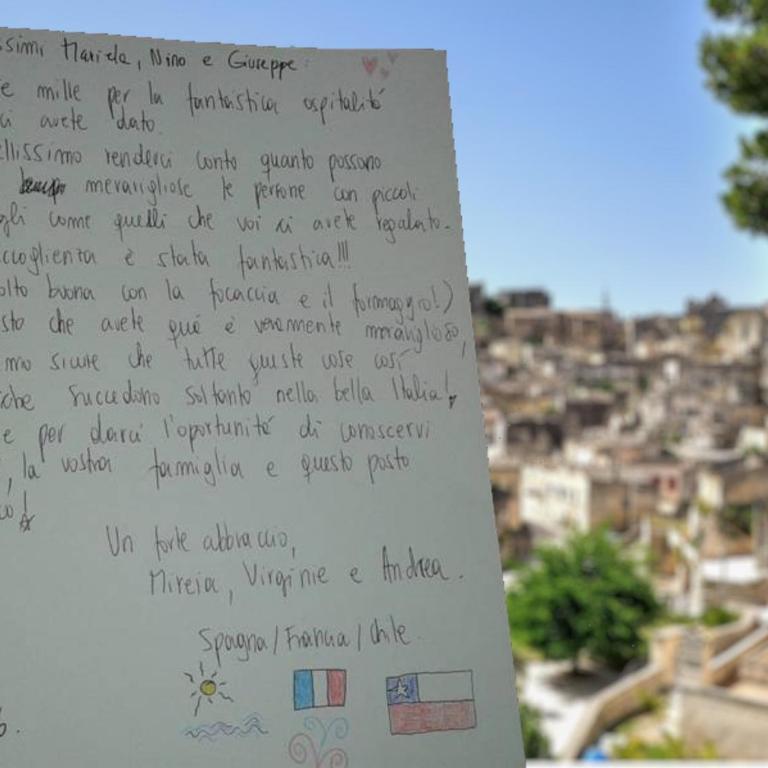 ssimi Mariela, Nino e Giuseppe:
e mille per la fantastica ospitalité
ci avete dato.
llissimo renderci conto quanto possono
meravigliose le persone con piccoli
gli come quelli che voi ci avete regalato.
ccoglienza è stata fantastica!!!
olto buona con la focaccia e il formaggio!)
sto che avete qué è veramente meraviglioso,
mo sicure che tutte queste cose così
che succedono soltanto nella bella Italia!
e per darci l'oportunité di conoscervi
, la vostra famiglia e questo posto
co!
Un forte abbraccio,
Mireia, Virginie e Andrea.
Spagna/Francia/Chile.